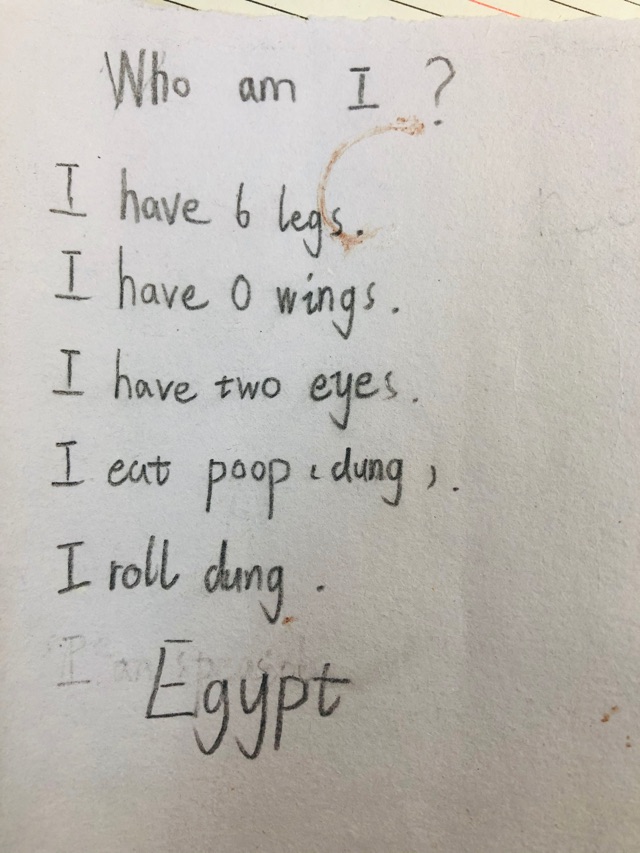 Who am I ?
I have 6 legs.
I have 0 wings.
I have two eyes.
I eat poop (dung).
I roll dung.
Egypt